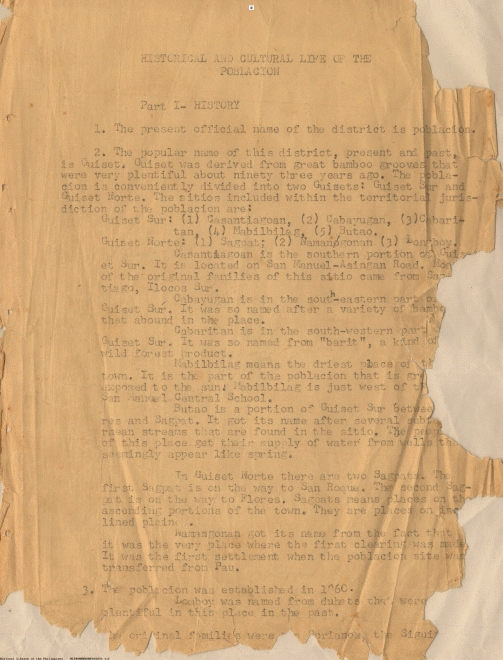 HISTORICAL AND CULTURAL LIFE OF THE
POBLACION
Part I- HISTORY
1. The present official name of the district is poblacion.
2. The popular name of this district, present and past,
is Guiset. Guiset was derived from great bamboo grooves that
were very plentiful about ninety three years ago. The pobla-
cion is conveniently divided into two Guisets: Guiset Sur and
Guiset Norte. The sitios included within the territorial juris-
diction of the poblacion are:
Guiset Sur: (1) Casantiagoan, (2) Cabayugan, (3)Cabari-
tan, (4) Mabilbilag, (5) Butao.
Guiset Norte: (1) Sagpat; (2) Namangonan (3) Lomboy.
Casantiagoan is the southern portion of Gui
et Sur. It is located on San Manuel-Asingan Road.
of the original families of this sitio came from San
tiago, Ilocos Sur.
Cabayugan is in the south-eastern part o
Guiset Sur. It was so named after a variety of bambo
that abound in the place.
Cabaritan is in the south-western part
Guiset Sur. It was so named from "barit", a kind of
wild forest product.
Mabilbilag means the driest place of th
town. It is the part of the poblacion that is
exposed to the sun. Mabilbilag is just west of t
San Manuel Central School.
Butao is a portion of Guiset Sur betwee
res and Sagpat. It got its name after several
streams that are found in the sitio. The
of this place get their supply of water from wells th
seemingly appear like spring.
In Guiset Norte there are two Sagpats. The
first Sagpat is on the way to San Roque. The second Sag-
pat is on the way to Flores. Sagpats means places on the
ascending portions of the town. They are places on inc
lined plain .
Namangonan got its name from the fact that
it was the very place where the first clearing was
It was the first settlement when the poblacion site was
transferred from Pau.
3. The poblacion was established in 1860.
Lomboy was named from duhats that were
plentiful in this place in the past.
original families were the